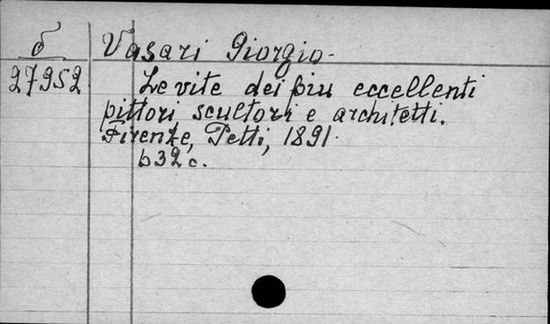 б
27952
Vasari Giorgio.
Le vite dei piu eccellenti
pittori, scultori e architetti.
Firenze, Petti, 1891.
632 c.